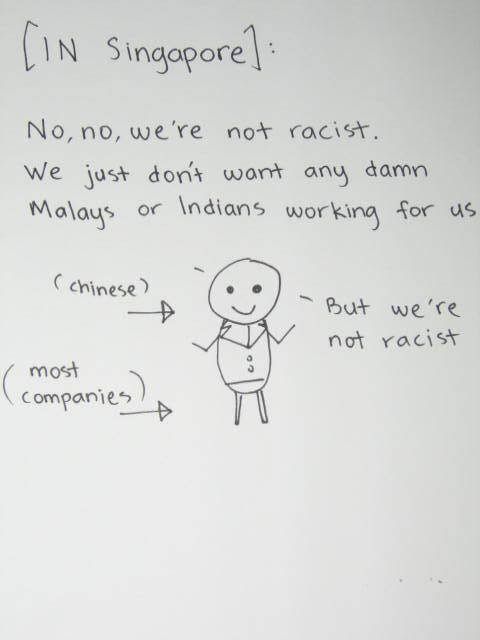 [IN Singapore]:
No, no, we're not racist.
We just don't want any damn
Malays or Indians working for us
(chinese)
But we're
not racist
(most
companies)